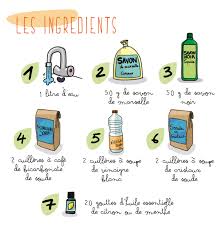 LES INGREDIENTS
1
1 litre d'eau
2
SAVON
de marseille
50 g de savon
de marseille
3
SAVON
NOIR
50 g de savon
noir
4
2 cuillères à café
de bicarbonate
de soude
5
2 cuillères à soupe
de vinaigre
blanc
6
2 cuillères à soupe
de cristaux de
soude
7
20 gouttes d'huile essentielle
de citron ou de menthe